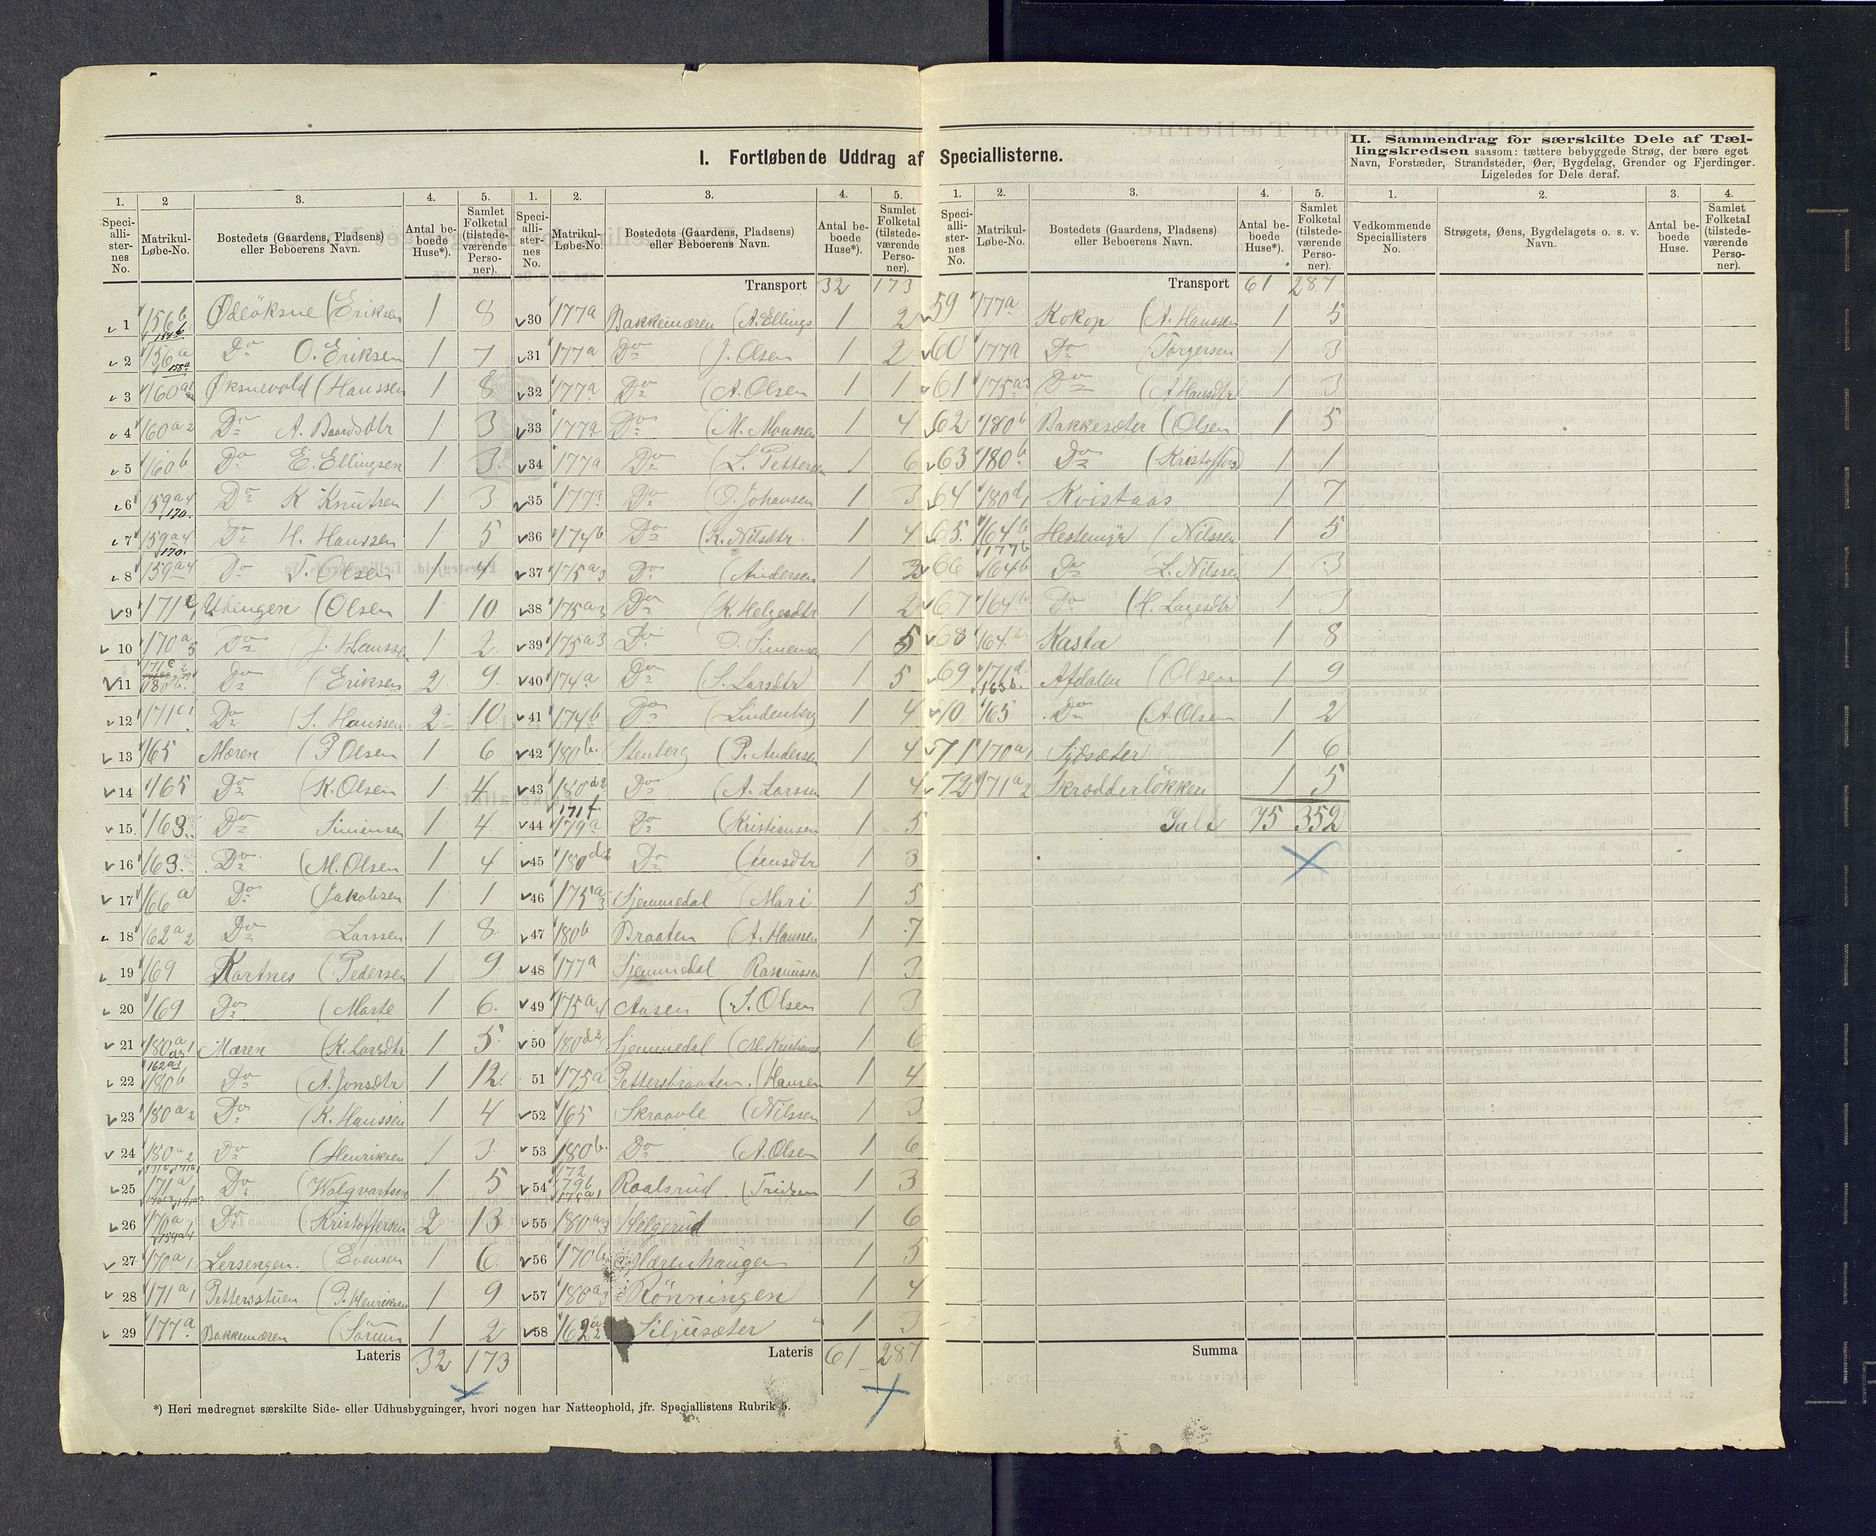 I. Fortløbende Uddrag af Speciallisterne.
II. Sammendrag for særskilte Dele af Tæl-
lingskredsen saasom: tættere bebyggede Strøg, der bære eget
Navn, Forstæder, Strandsteder, Øer, Bygdelag, Grender og Fjerdinger.
Ligeledes for Dele deraf.
1. 2 3. 4. 5. 1. 2. 3. 4. 5. 1. 2. 3. 4. 5. 1. 2. 3. 4.
Speciallisternes No. Matrikul-Løbe-No. Bostedets (Gaardens, Pladsens) eller Beboerens Navn. Antal beboede Huse*). Samlet Folketal (tilstedeværende Personer).
Speciallisternes No. Matrikul-Løbe-No. Bostedets (Gaardens, Pladsens) eller Beboerens Navn. Antal beboede Huse*). Samlet Folketal (tilstedeværende Personer).
Speciallisternes No. Matrikul-Løbe-No. Bostedets (Gaardens, Pladsens) eller Beboerens Navn. Antal beboede Huse*). Samlet Folketal (tilstedeværende Personer).
Vedkommende Speciallisters No. Strøgets, Øens, Bygdelagets o. s. v. Navn. Antal beboede Huse. Samlet Folketal (tilstedeværende Personer).
1 156b Ødeöksne (Eriksen 1 8
2 156a Do O. Eriksen 1 7
3 160a1 Øksnevold (Hanssen 1 8
4 160a2 Do A. Baardsdtr 1 3
5 160b Do E. Ellingsen 1 3
6 159a4 170 Do K Knutsen 1 3
7 159a4 170 Do H. Hanssen 1 5
8 159a4 Do T. Olsen 1 4
9 171 Udengen (Olsen 1 10
10 170a5 Do J. Hansse 1 2
11 180b Do (Eriksen 2 9
12 171c1 Do (S. Hanssen 2 10
13 165 Mæren (P Olsen 1 6
14 165 Do (K. Olsen 1 4
15 163 Do Simensen 1 4
16 163 Do (M. Olsen 1 4
17 166a Do (Jakobsen 1 1
18 162a2 Do Larssen 1 8
19 169 Kortnes (Pedersen 1 9
20 169 Do (Marte 1 6
21 180a1 Mæren (K. Larsdtr 1 5
22 162a1 180b Do (A. Jonsdtr 1 12
23 180a2 Do (K. Hanssen 1 4
24 180a2 Do (Henriksen 1 3
25 171a1 Do (Wolgvartsen 1 5
26 170a1 159a4 Do (Kristoffersen 2 13
27 170a1 Lersengen (Evensen 1 6
28 171a1 Pettersstuen (P. Henriksen 1 9
29 177a Bakkemæren (Sörum 1 2
Lateris 32 173
Transport 32 173
30 177a Bakkemæren (A. Ellings 1 2
31 177a Do (J. Olsen 1 2
32 177a Do (A. Olsen 1 1
33 177a Do (M. Monssen 1 4
34 177a Do (L. Pettersen 1 6
35 177a Do (O. Johansen 1 3
36 174b Do (K. Nilsdtr. 1 4
37 175a3 Do (Andersen 1 3
38 175a3 Do (K. Helgesdtr 1 2
39 175a3 Do O. Simensen 1 5
40 174a Do (S. Larsdtr 5
41 174b Do (Lindenberg 1 4
42 180b Stenberg (P. Andersen 1 4
43 180d2 Do (A. Larssen 1 4
44 171f 179a Do (Kristiansen 1 5
45 180d2 Do (Jensdtr 1 3
46 175a3 Sjemmedal (Mari 1 5
47 180b Braaten (A. Hanssen 1 7
48 177a Sjemmedal Rasmussen 1 3
49 175a4 Aasen (S. Olsen 1 3
50 180d2 Sjemmedal (M. Kristians 1 6
51 175a Pettersbraaten (Hansen 1 4
52 165 Skraavle (Nilssen 1 3
53 180b Do (A. Olsen 1 6
54 172 Raalsrud 1 3
55 180a3 Helgerud 1 6
56 170b Mærenhaugen 1 5
57 180a3 Rönningen 1 4
58 162a2 Siljusæter 1 3
Lateris 61 287
Transport 61 287
59 177a Kokop (A. Hanssen 1 5
60 177a Do Torgersen 1 3
61 175a3 Do (A Hansdtr 1 3
62 180b Bakkesæter (Olsen 1 5
63 180b Do (Kristoffers 1 1
64 180d1 Kvistaas 1 7
65 164b 177b Hestemyr (Nilssen 1 5
66 164b Do L. Nilssen 1 3
67 164b Do (H. Lagesdtr 1 3
68 164b Kasta 1 8
69 171d 163b Afdalen (Olsen 1 9
70 165 Do (A. Olsen 1 2
71 170a1 Sydsæter 1 6
72 171a2 Skrædderlökken 1 5
Ialt 75 352
Summa
*) Heri medregnet særskilte Side- eller Udhusbygninger, hvori nogen har Natteophold, jfr. Speciallistens Rubrik 5.